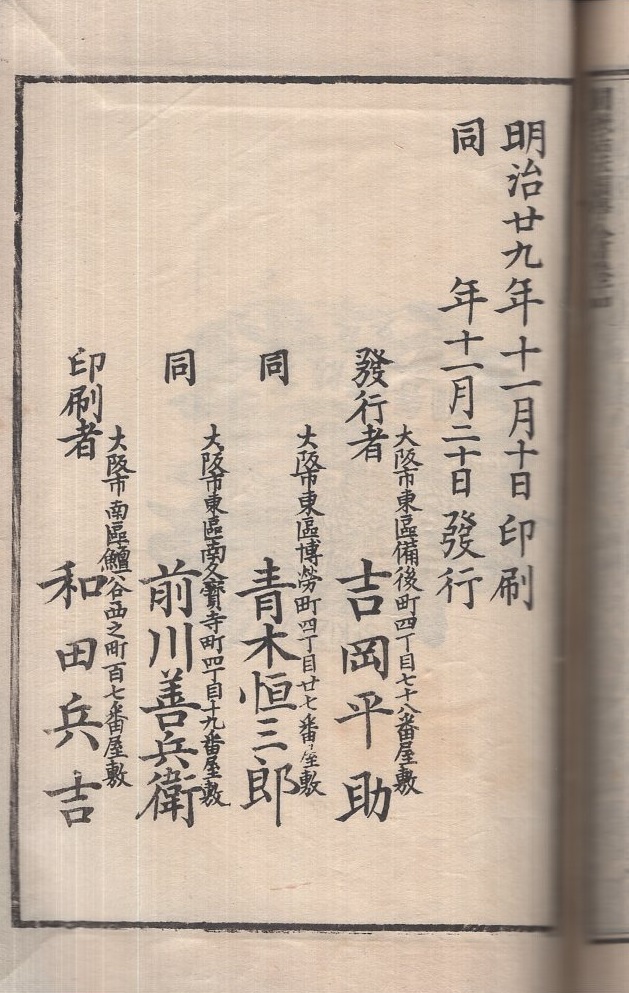 明治廿九年十一月十日印刷
同年十一月二十日發行
大阪市東區備後町四丁目七十八番屋敷
發行者 吉岡平助
大阪市東區博勞町四丁目廿七番屋敷
同 青木恒三郎
大阪市東區南久寳寺町四丁目十九番屋敷
同 前川善兵衛
大阪市南區鰻谷西之町百七番屋敷
印刷者 和田兵吉